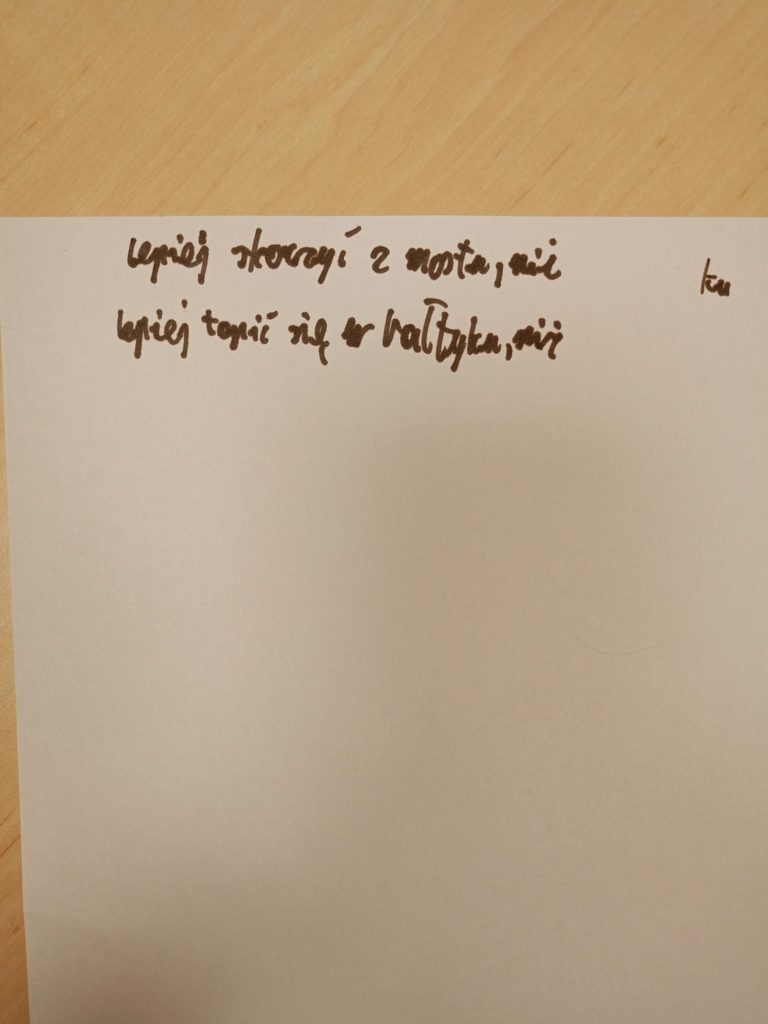 lepiej skoczyć z mostu, niż ku
lepiej topić się w bałtyku, niż